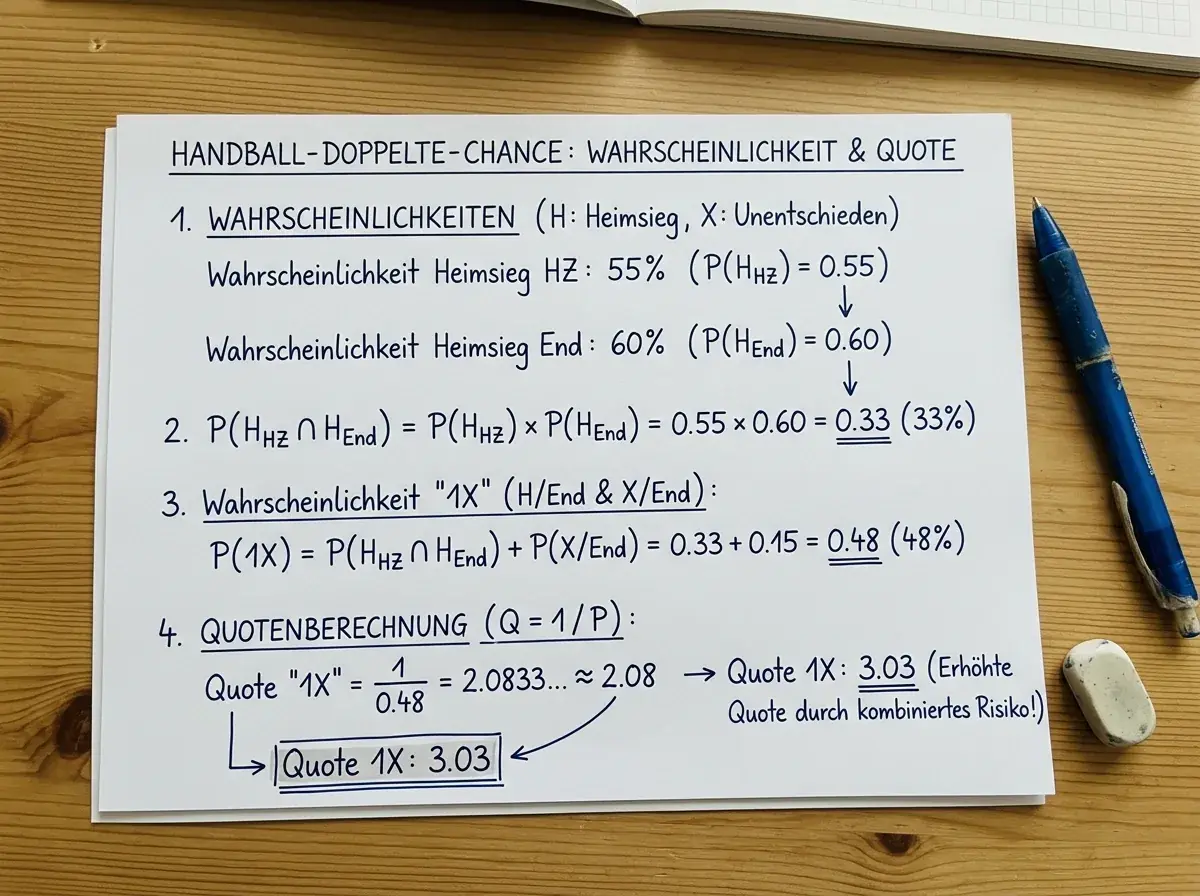 HANDBALL-DOPPELTE-CHANCE: WAHRSCHEINLICHKEIT & QUOTE
1. WAHRSCHEINLICHKEITEN (H: Heimsieg, X: Unentschieden)
Wahrscheinlichkeit Heimsieg HZ: 55% (P(H_HZ) = 0.55)
↓
Wahrscheinlichkeit Heimsieg End: 60% (P(H_End) = 0.60)
↓
2. P(H_HZ ∩ H_End) = P(H_HZ) × P(H_End) = 0.55 × 0.60 = 0.33 (33%)
3. Wahrscheinlichkeit "1X" (H/End & X/End):
P(1X) = P(H_HZ ∩ H_End) + P(X/End) = 0.33 + 0.15 = 0.48 (48%)
4. QUOTENBERECHNUNG (Q = 1 / P):
Quote "1X" = 1/0.48 = 2.0833... ≈ 2.08 → Quote 1X: 3.03 (Erhöhte
Quote durch kombiniertes Risiko!)
Quote 1X: 3.03